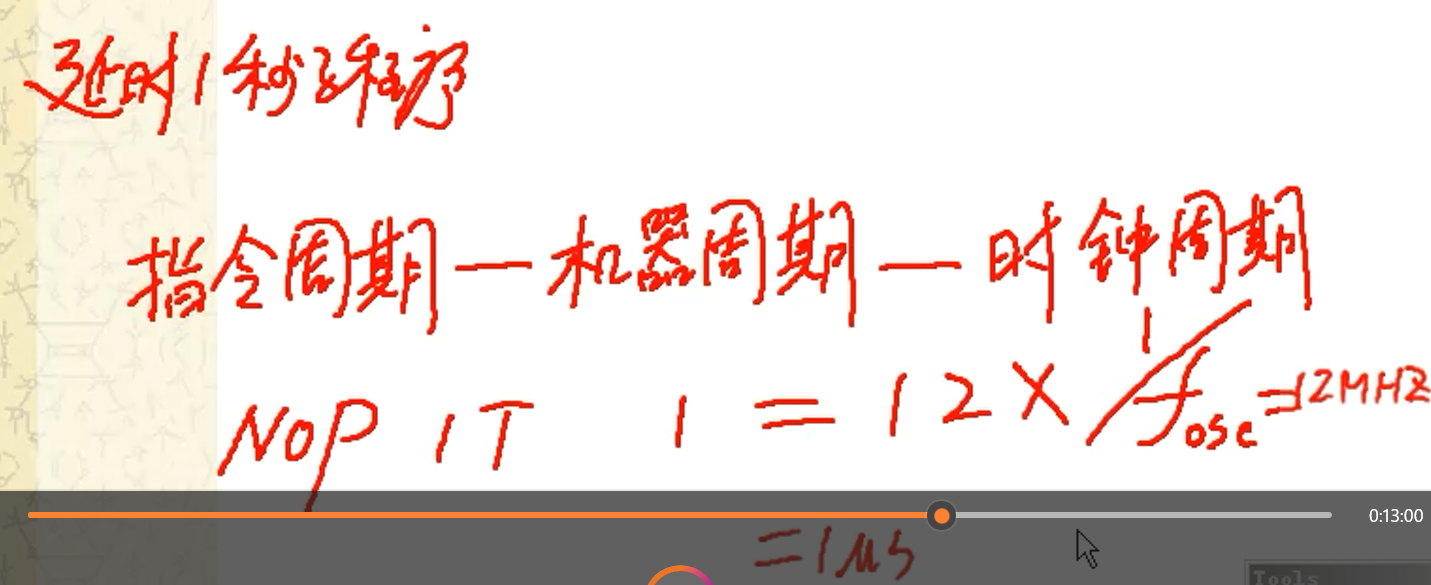 延时1秒子程序
指令周期—机器周期—时钟周期
NOP 1T 1 = 12 × 1/fosc =12MHZ
0:13:00
=1μs
Tools